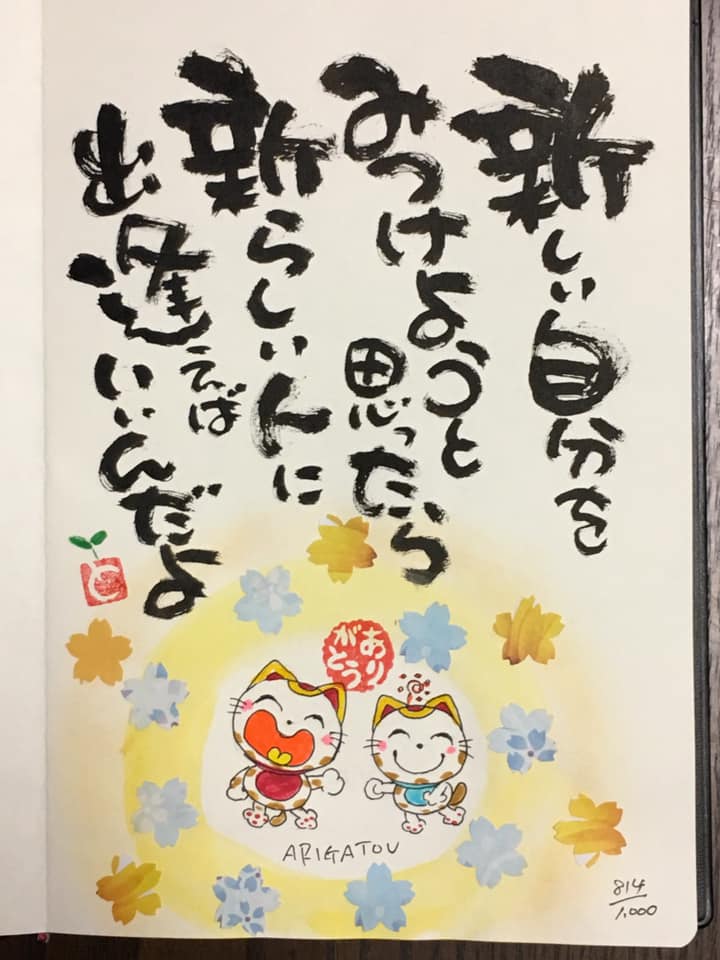 新しい自分を
みつけようと
思ったら
新らしい人に
出逢えば
いいんだよ
と
ありがとう
ARIGATOU
814
1,000